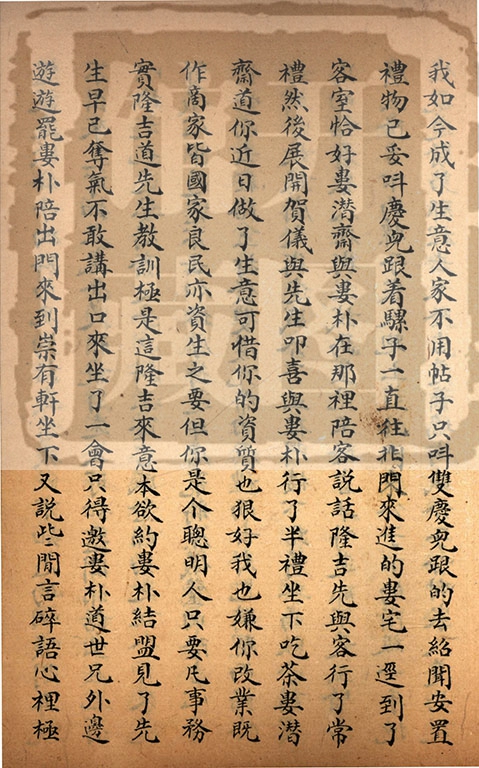 我如今成了生意人家不用帖子只呌雙慶兒跟的去紹聞安置
禮物已妥呌慶兒跟着騾子一直往北門來進的婁宅一逕到了
客室恰好婁潛齋與婁朴在那裡陪客説話隆吉先與客行了常
禮然後展開賀儀與先生叩喜與婁朴行了半禮坐下吃茶婁潛
齋道你近日做了生意可惜你的資質也狠好我也嫌你改業既
作商家皆國家良民亦資生之要但你是个聰明人只要凡事務
實隆吉道先生教訓極是這隆吉來意本欲約婁朴結盟見了先
生早已奪氣不敢講出口來坐了一會只得邀婁朴道世兄外邊
遊遊罷婁朴陪出門來到崇有軒坐下又説些二閒言碎語心裡極